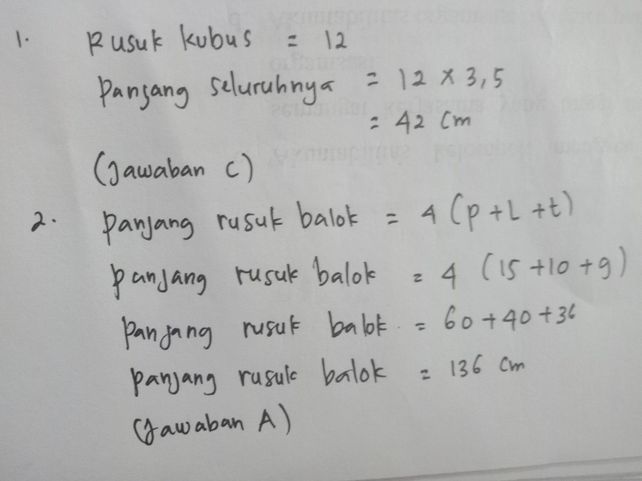 1. Rusuk kubus = 12
Panjang seluruhnya = 12 x 3,5
= 42 cm
(Jawaban C)
2. panjang rusuk balok = 4 (p+L+t)
panjang rusuk balok = 4 (15+10+9)
panjang rusuk balok = 60+40+36
panjang rusuk balok = 136 cm
(Jawaban A)